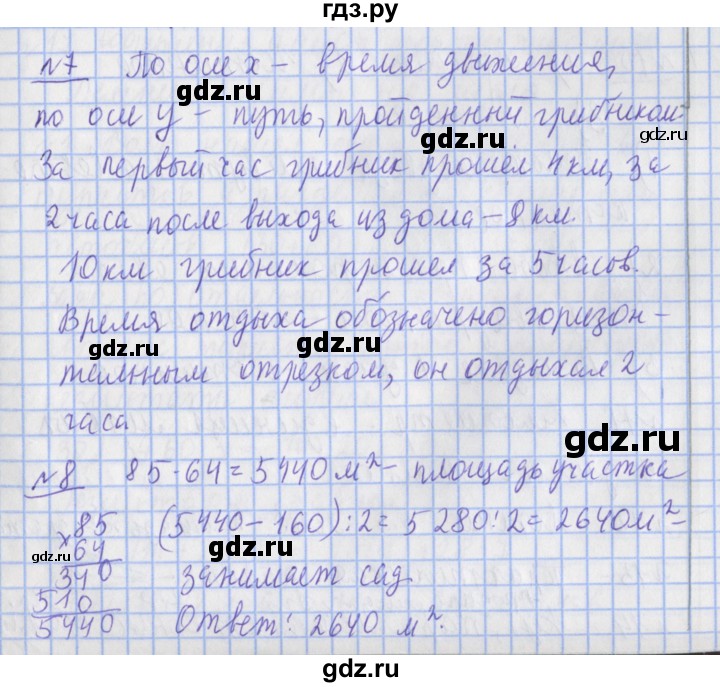 гдз.ру
№7 По оси x – время движения,
gdz.ru gdz.ru
по оси y – путь, пройденный грибником.
gdz.ru
За первый час грибник прошёл 4 км, за
2 часа после выхода из дома – 8 км.
gdz.ru
10 км грибник прошел за 5 часов.
Время отдыха обозначено горизон-
gdz.ru gdz.ru
тальным отрезком, он отдыхал 2
часа
gdz.ru
№8 85·64=5440 м²– площадь участка
×85 (5440–160):2=5280:2=2640м²–
gdz.ru gdz.ru gdz.ru
64
340 занимает сад
510
5440 Ответ: 2640 м².
gdz.ru